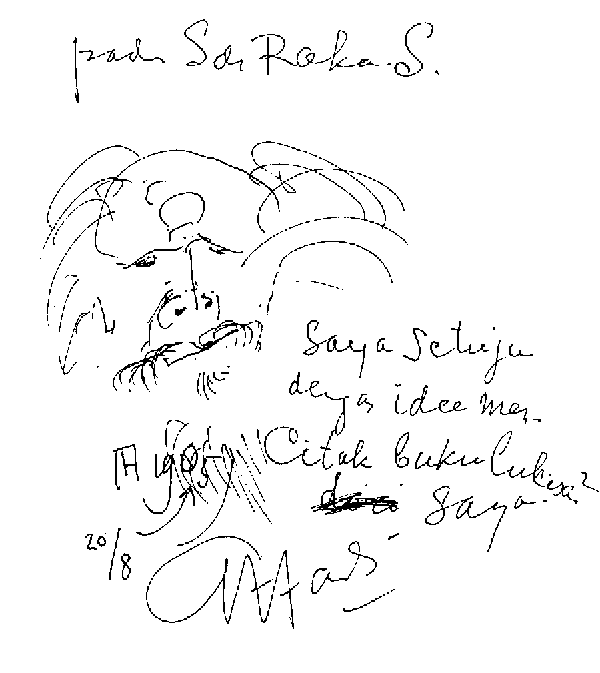 pada Sdr Roka. S.
Saya setuju
dengan idee men-
Citak buku lukisan2
saya.
20/8